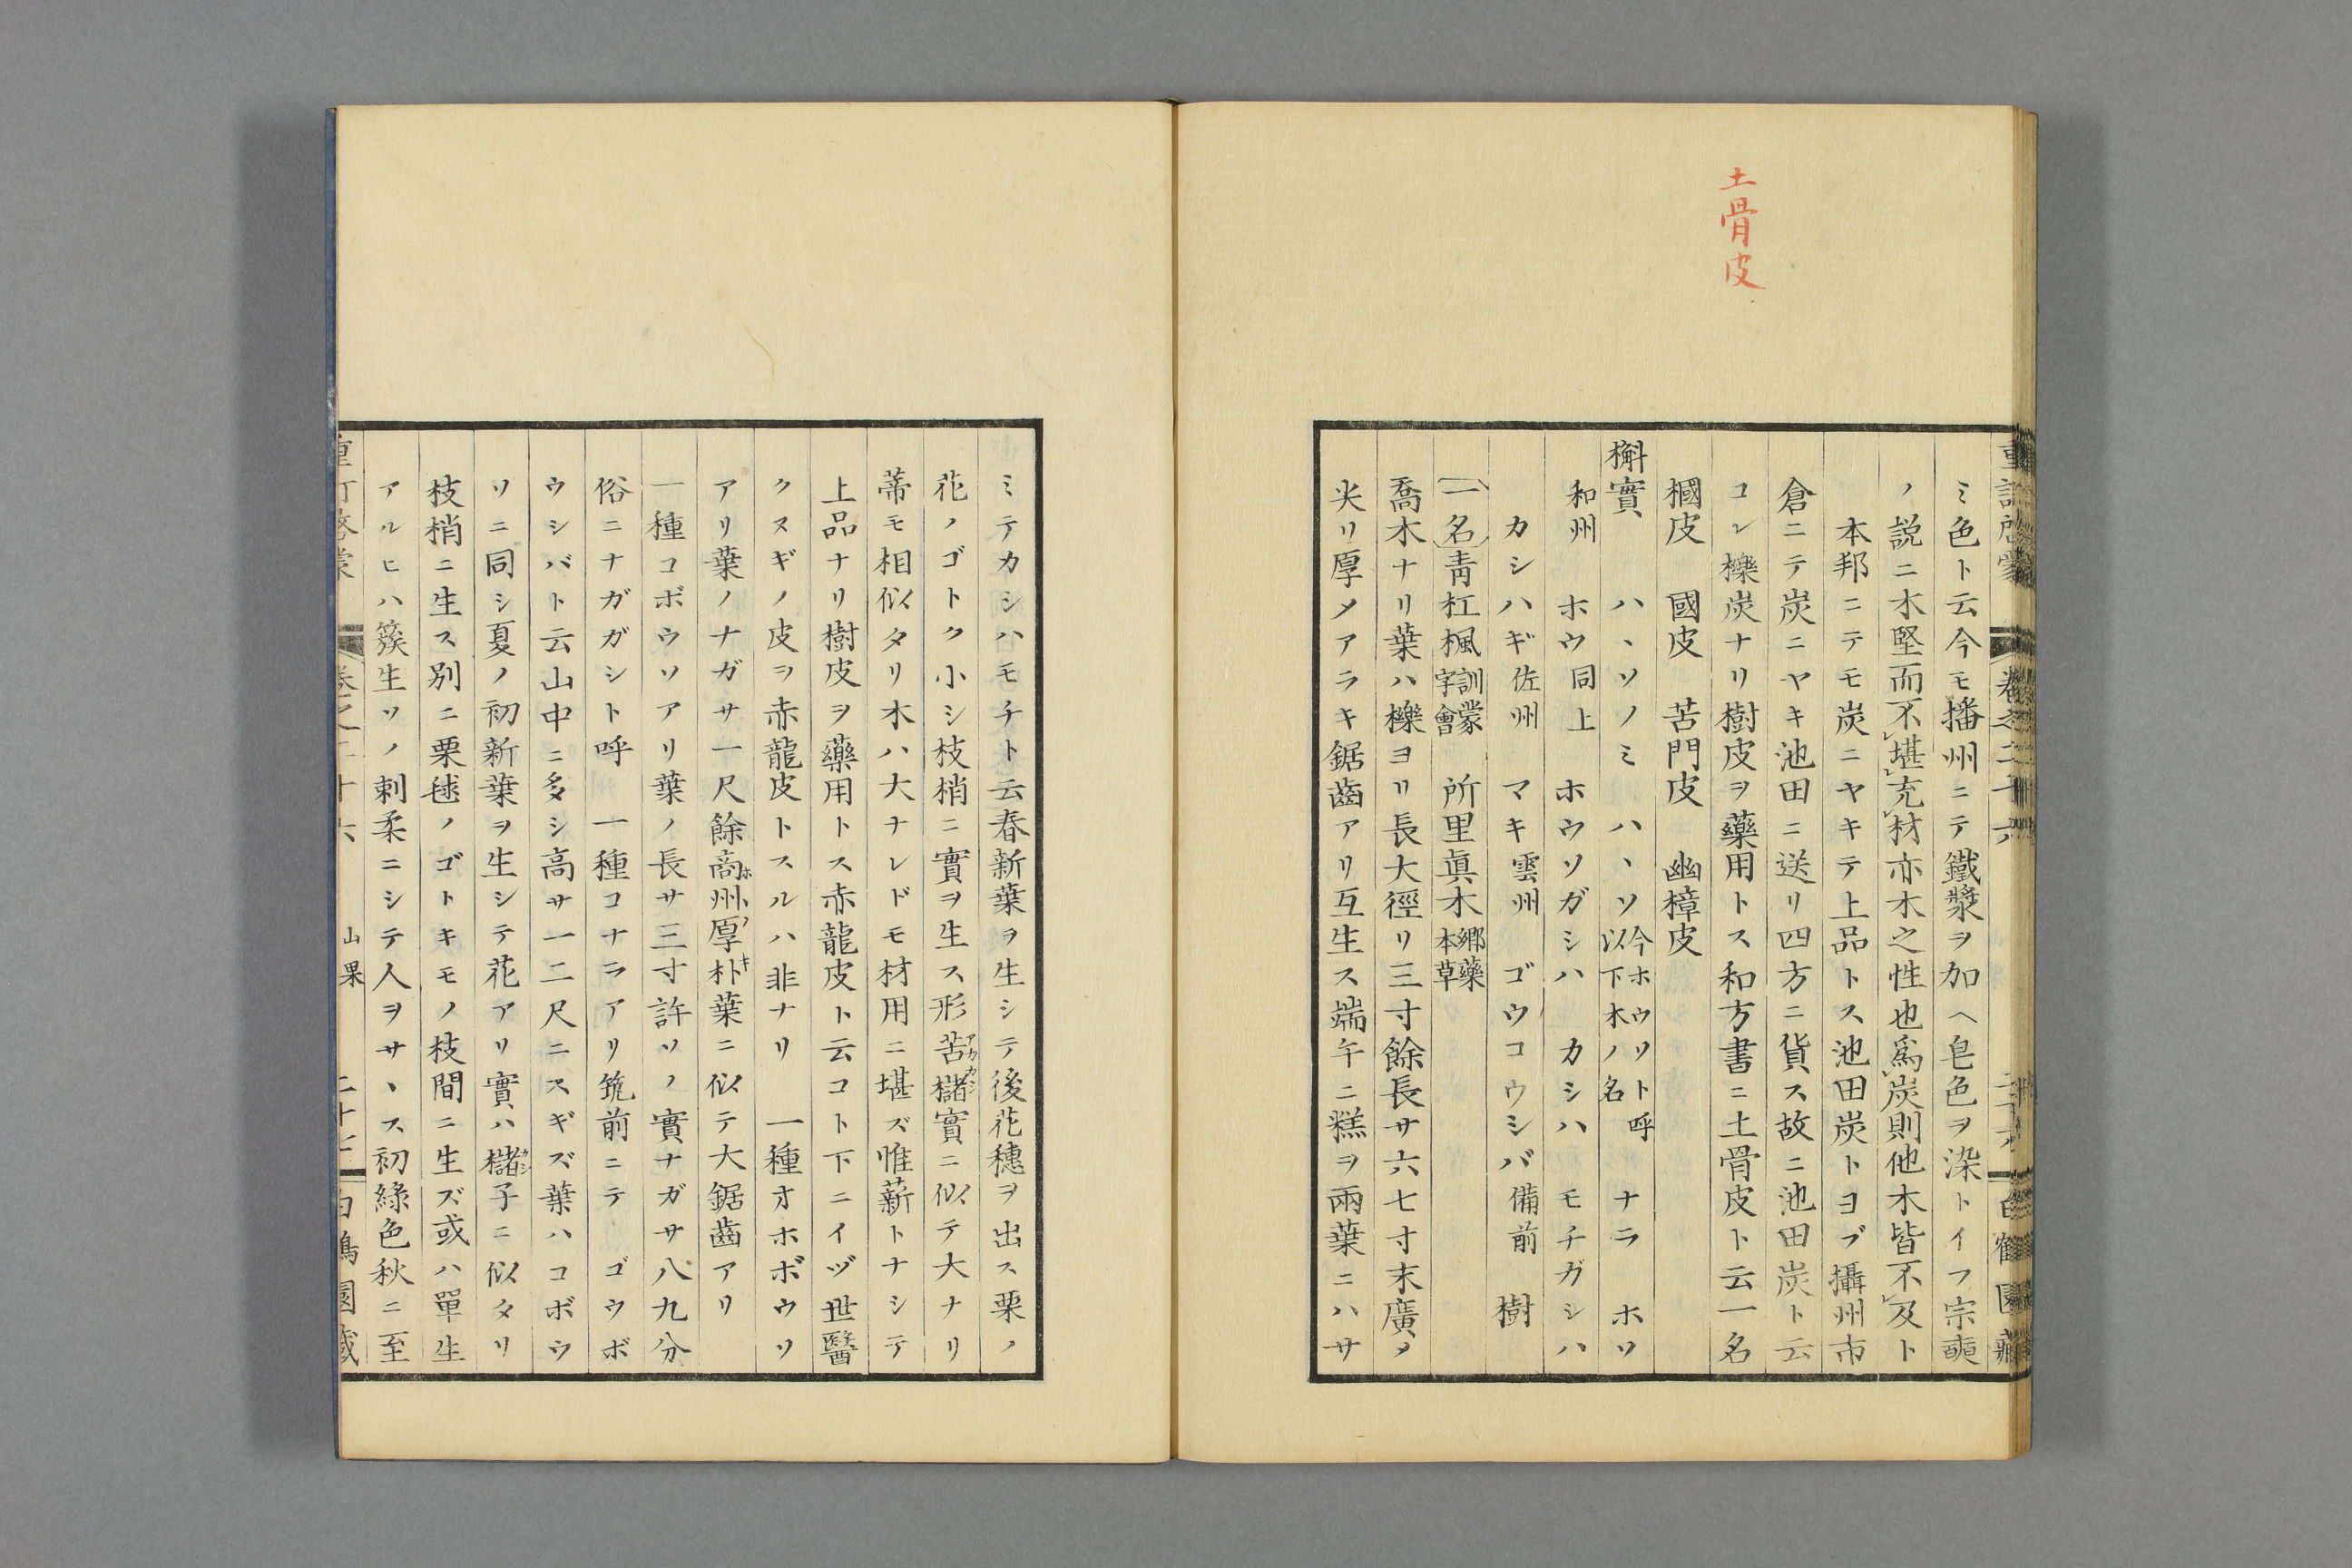 土骨皮
ミ色ト云今モ播州ニテ鐵漿ヲ加ヘ皂色ヲ染トイフ宗奭
ノ説ニ木堅而不堪充材亦木之性也爲炭則他木皆不及ト
本邦ニテモ炭ニヤキテ上品トス池田炭トヨブ攝州市
倉ニテ炭ニヤキ池田ニ送リ四方ニ貨ス故ニ池田炭ト云
コレ櫟炭ナリ樹皮ヲ藥用トス和方書ニ土骨皮ト云一名
槶皮 國皮 苦門皮 幽樟皮
槲實 ハヽソノミ ハヽソ 今ホウソト呼以下木ノ名 ナラ ホソ
和州 ホウ 同上 ホウソガシハ カシハ モチガシハ
カシハギ 佐州 マキ 雲州 ゴウコウシバ 備前 樹
一名 青杠楓 訓蒙字會 所里眞木 郷藥本草
喬木ナリ葉ハ櫟ヨリ長大徑リ三寸餘長サ六七寸末廣メ
尖リ厚メアラキ鋸齒アリ互生ス端午ニ糕ヲ兩葉ニハサ
ミテカシハモチト云春新葉ヲ生シテ後花穗ヲ出ス栗ノ
花ノゴトク小シ枝梢ニ實ヲ生ス形苦櫧實ニ似テ大ナリ
蒂モ相似タリ木ハ大ナレドモ材用ニ堪ズ惟薪トナシテ
上品ナリ樹皮ヲ藥用トス赤龍皮ト云コト下ニイヅ世醫
クヌギノ皮ヲ赤龍皮トスルハ非ナリ 一種オホボウソ
アリ葉ノナガサ一尺餘商州厚朴葉ニ似テ大鋸齒アリ
一種コボウソアリ葉ノ長サ三寸許ソノ實ナガサ八九分
俗ニナガガシト呼 一種コナラアリ筑前ニテ ゴウボ
ウシバト云山中ニ多シ高サ一二尺ニスギズ葉ハコボウ
ソニ同シ夏ノ初新葉ヲ生シテ花アリ實ハ櫧子ニ似タリ
枝梢ニ生ス別ニ栗毬ノゴトキモノ枝間ニ生ズ或ハ單生
アルヒハ簇生ソノ刺柔ニシテ人ヲサヽス初綠色秋ニ至
山果